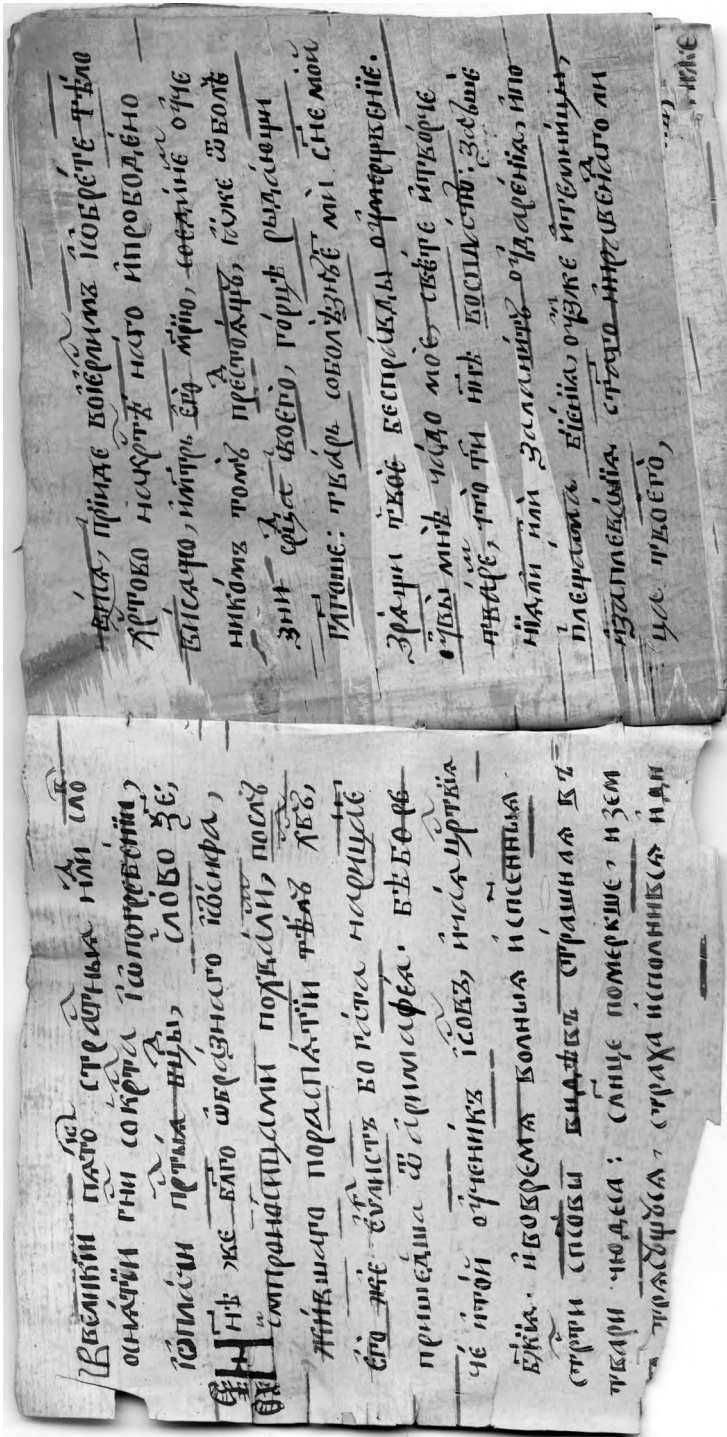 Ввеликїи пѧто страстныѧ нд҇ли сло
оснѧтїи гн҃и сокрⷭ҇та їѡпогребенїи,
їѡплачи прⷭ҇тыѧ бц҃ы, слово ѯ҃е;
Нн҃ѣ же бл҃го ѡбразнаго їѡсифа,
смироносицами похвали, послꙋ
жившаго пораспѧтїи тѣлꙋ хв҃ꙋ,
его же еѵⷢ҇листъ богата нарицае
пришедша ѿ аримафеа. бѣ бо съ
че итои оученикъ їсовъ, ичаѧ црⷭ҇твїѧ
бж҃їѧ. ивовремѧ волныѧ испⷭ҇сенныѧ
стрⷭ҇ти сп҃совы видѣвъ страшнаѧ въ
твари чюдеса: слн҃це померкше, изем
трѧсꙋщꙋсѧ, страха исполнивсѧ иди
висѧ, прїиде воїерⷭ҇лимъ иѡбрѣте тѣло
хрⷭ҇тово накрⷭ҇тѣ наго ипрободено
висѧщо, имт҃рь его мр҃їю, оуче
никомъ томъ престоѧщъ, ꙗже ѿ болѣ
зни срⷣца своего, горцѣ рыдающи
гл҃юще: тварь соболѣзнꙋетъ ми сн҃е мои
зрѧщи твое бесправды оумерщвенїе.
оувы мнѣ чадо мое, свѣте итворче
тваре, что ти нн҃ѣ восплачю: заоуше
нїѧли или заланитꙋ оударенїѧ, ипо
плещама бїенїѧ, оузже итемницы,
изаплеванїѧ ст҃аго инравенаго ли
ца твоего,